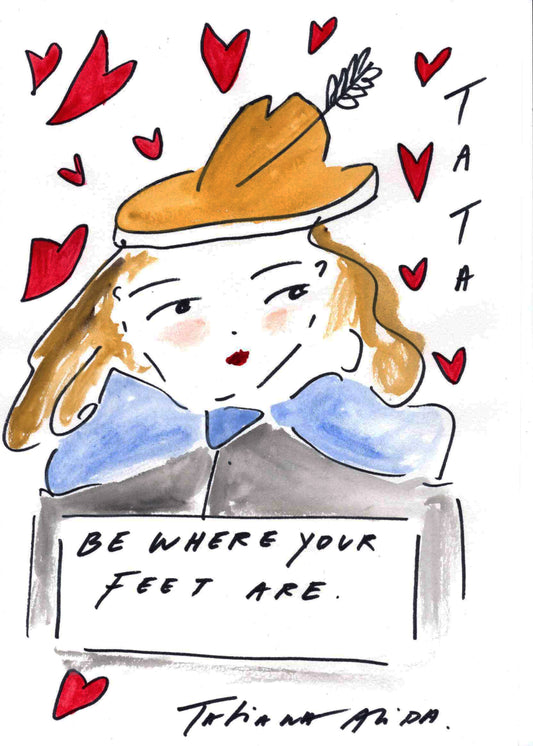 TATA
BE WHERE YOUR
FEET ARE.
TATIANA ALIDA.